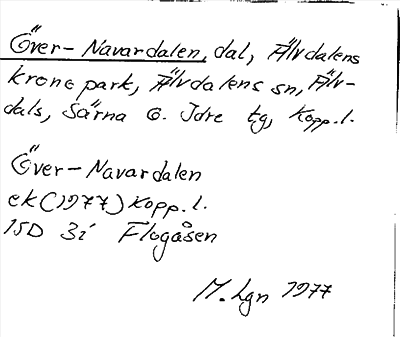 Över-Navardalen, dal, Älvdalens
krono park, Älvdalens sn, Älv-
dals, Särna o. Idre tg, Kopp. l.
Över-Navardalen
ek (1977) Kopp. l.
15D 3i Flogåsen
M. Lgn 1977